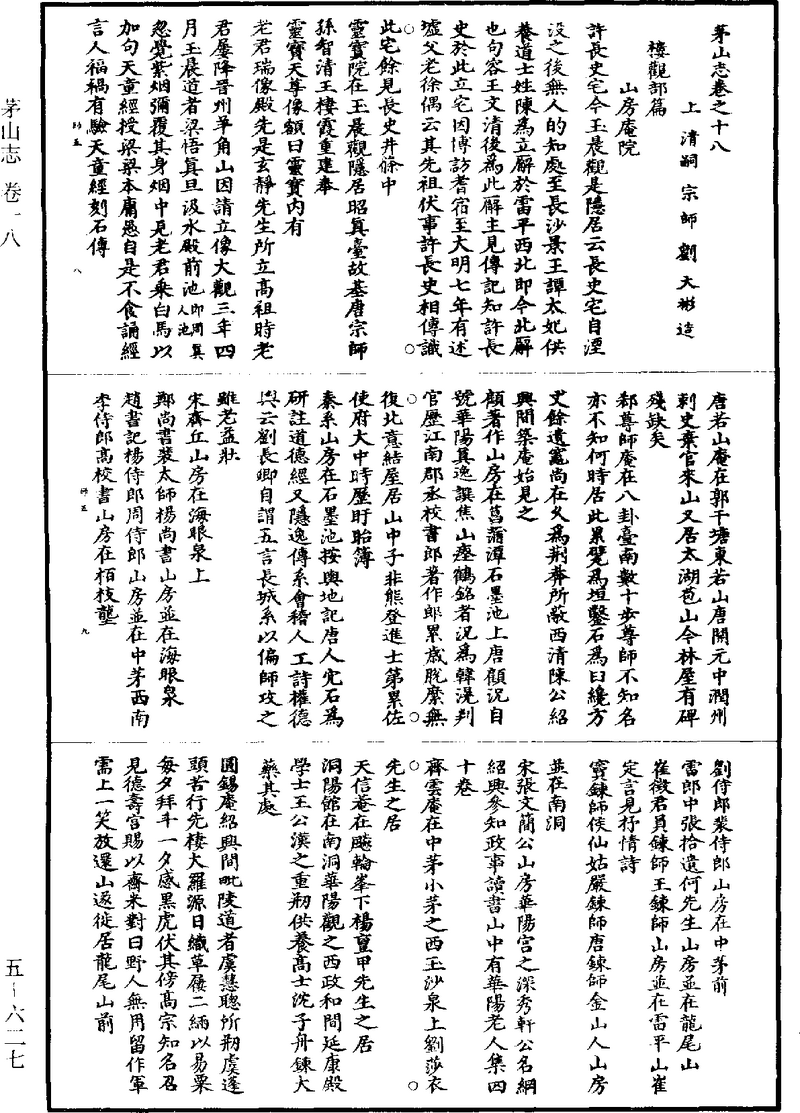 茅山志卷之十八
上清嗣宗師劉大彬造
樓觀部篇
山房庵院
許長史宅今玉晨觀是隱居云長史宅自湮
没之後無人的知處至長沙景王譚太妃供
養道士姓陳為立廨於雷平西北即今北廨
也句容王文清後為此廨主見傳記知許長
史於此立宅因博訪耆宿至大明七年有述
墟父老徐偶云其先祖伏事許長史相傳識
此宅餘見長史井條中
靈寶院在玉晨觀隱居昭真臺故基唐宗師
孫智清王棲霞重建奉
靈寶天尊像額曰靈寶內有
老君瑞像殿先是玄靜先生所立高祖時老
君屢降晉州羊角山因請立像大觀三年四
月玉晨道者梁悟真旦汲水殿前池即周真人池
忽覺紫烟彌覆其身烟中見老君乘白馬以
加句天童經授梁梁本庸愚自是不食誦經
言人福禍有驗天童經刻石傳
師五
八
唐若山庵在郭干塘東若山唐開元中潤州
刺史棄官來山又居太湖苞山今林屋有碑
殘缺矣
郄尊師庵在八卦臺南數十步尊師不知名
亦不知何時居此累甓為垣鑿石為臼纔方
丈餘遺竈尚在久為荆莽所蔽西清陳公紹
興間築庵始見之
顧著作山房在菖蒲潭石墨池上唐顧況自
號華陽真逸譔焦山瘞鶴銘者況為韓滉判
官歷江南郡丞校書郎著作郎累歲脫縻無
復北意結屋居山中子非熊登進士第累佐
使府大中時歷盱眙簿
秦系山房在石墨池按輿地記唐人穴石為
研註道德經又隱逸傳系會稽人工詩權德
輿云劉長卿自謂五言長城系以偏師攻之
雖老益壯
宋齊丘山房在海眼泉上
鄭尚書裴太師楊尚書山房並在海眼泉
趙書記楊侍郎周侍郎山房並在中茅西南
李侍郎高校書山房在栢枝壟
師五
九
劉侍郎裴侍郎山房在中茅前
雷郎中張拾遺何先生山房並在龍尾山
崔徵君員鍊師王鍊師山房並在雷平山崔
定言見抒情詩
竇鍊師侯仙姑嚴鍊師唐鍊師金山人山房
並在南洞
宋張文簡公山房華陽宮之深秀軒公名綱
紹興參知政事讀書山中有華陽老人集四
十卷
齊雲庵在中茅小茅之西玉沙泉上劉莎衣
先生之居
天信菴在飈輪峯下楊蠒甲先生之居
洞陽館在南洞華陽觀之西政和間延康殿
學士王公漢之重剏供養高士沈子舟鍊大
藥其處
圓錫庵紹興間毗陵道者虞慧聰所剏虞蓬
頭苦行先棲大羅源日織草屨二緉以易粟
每夕拜斗一夕感黑虎伏其傍高宗知名召
見德壽宮賜以齋米對曰野人無用留作軍
需上一笑放還山遂徙居龍尾山前
茅山志 卷一八
五－六二七